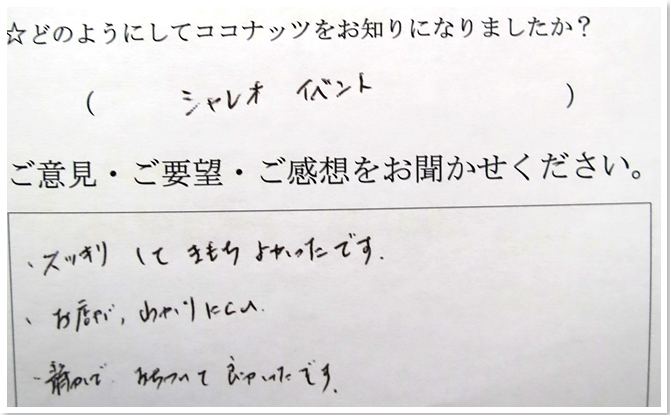 ☆どのようにしてココナッツをお知りになりましたか？
( シャレオ イベント )
ご意見・ご要望・ご感想をお聞かせください。
、スッキリ して きもち よかったです.
、お店が, わかりにくい.
・静かで おちついて 良かったです.